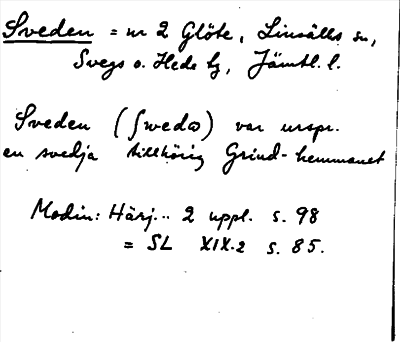 Sveden = nr 2 Glöte, Linsälls sn,
Svegs o. Hede tg, Jämtl. l.
Sveden (ʃwedɷ) var urspr.
en svedja tillhörig Grind-hemmanet
Modin: Härj... 2 uppl. s. 98
= SL XIX.2 s. 85.